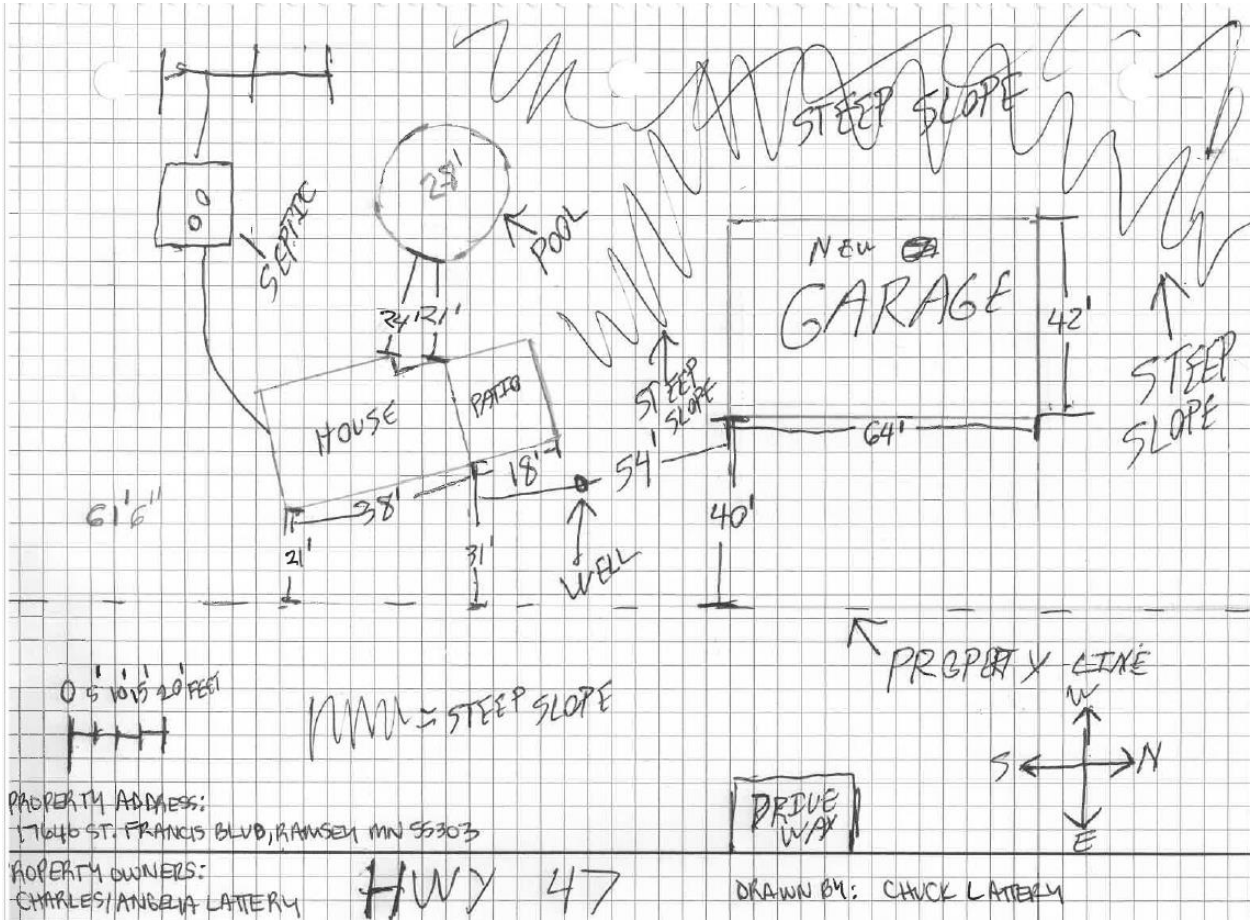 STEEP SLOPE
28'
POOL
SEPTIC
NEW
GARAGE
42'
STEEP
SLOPE
24' 21'
STEEP
SLOPE
HOUSE
PATIO
64'
54'
18'
38'
40'
61'6"
21'
31'
WELL
PROPERTY LINE
0 5' 10' 15' 20' FEET
= STEEP SLOPE
W
S
N
E
DRIVE
WAY
PROPERTY ADDRESS:
17646 ST. FRANCIS BLVD, RAMSEY MN 55303
ROPERTY OWNERS:
CHARLES/ANGELIA LATTERY
HWY 47
DRAWN BY: CHUCK LATTERY